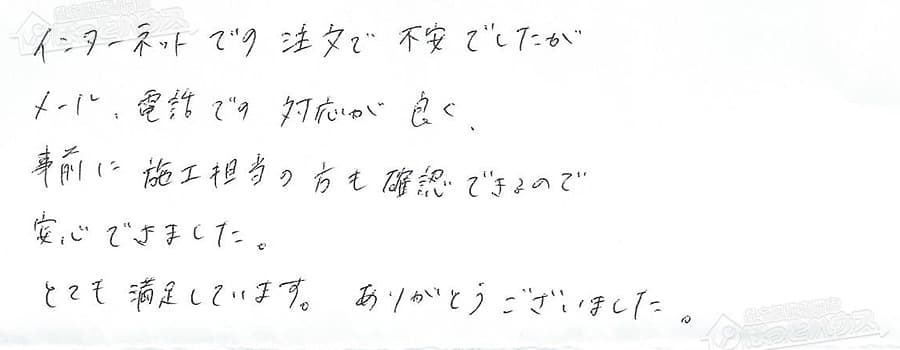 インターネットでの注文で不安でしたが
メール、電話での対応が良く、
事前に施工担当の方も確認できるので
安心できました。
とても満足しています。ありがとうございました。